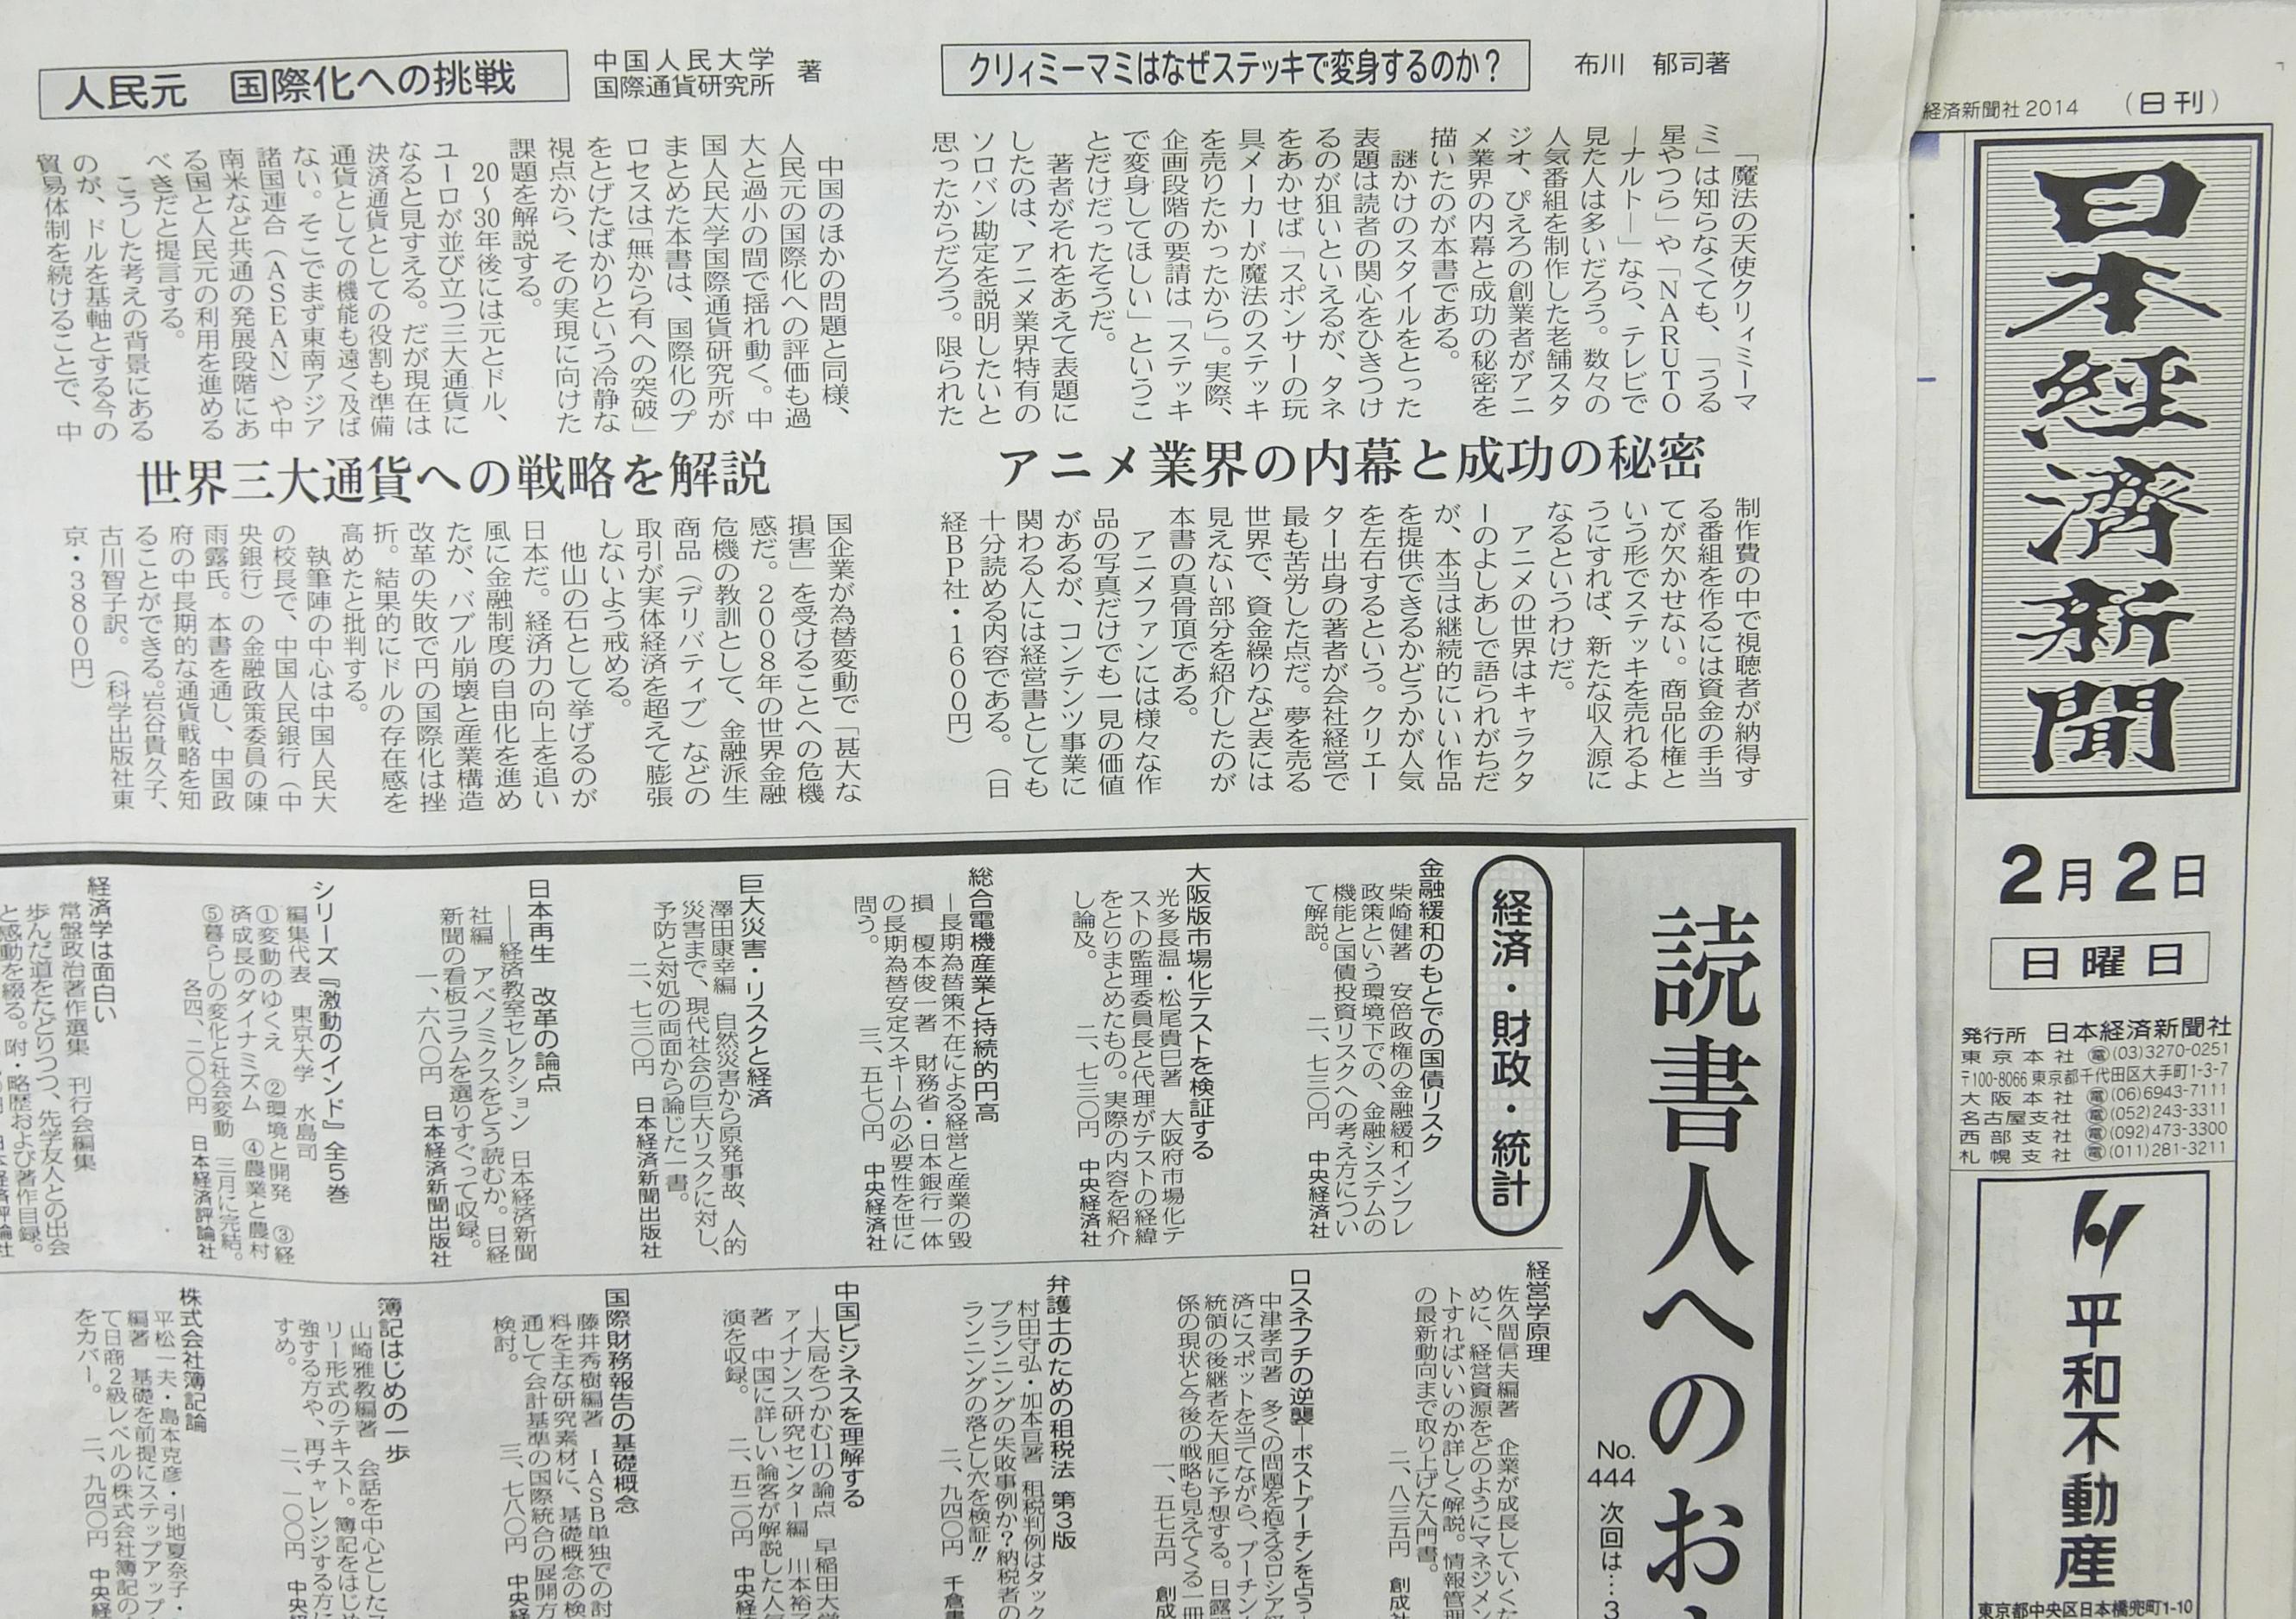 経済新聞社2014　（日刊）
日本経済新聞
2月2日
日曜日
発行所　日本経済新聞社
東京本社　電(03)3270-0251
〒100-8066東京都千代田区大手町1-3-7
大阪本社　電(06)6943-7111
名古屋支社　電(052)243-3311
西部支社　電(092)473-3300
札幌支社　電(011)281-3211
平和不動産
東京都中央区日本橋兜町1-10
クリィミーマミはなぜステッキで変身するのか？
布川　郁司著
「魔法の天使クリィミーマ
ミ」は知らなくても、「うる
星やつら」や「NARUTO
―ナルト―」なら、テレビで
見た人は多いだろう。数々の
人気番組を制作した老舗スタ
ジオ、ぴえろの創業者がアニ
メ業界の内幕と成功の秘密を
描いたのが本書である。
謎かけのスタイルをとった
表題は読者の関心をひきつけ
るのが狙いといえるが、タネ
をあかせば「スポンサーの玩
具メーカーが魔法のステッキ
を売りたかったから」。実際、
企画段階の要請は「ステッキ
で変身してほしい」というこ
とだけだったそうだ。
著者がそれをあえて表題に
したのは、アニメ業界特有の
ソロバン勘定を説明したいと
思ったからだろう。限られた
アニメ業界の内幕と成功の秘密
制作費の中で視聴者が納得す
る番組を作るには資金の手当
てが欠かせない。商品化権と
いう形でステッキを売れるよ
うにすれば、新たな収入源に
なるというわけだ。
アニメの世界はキャラクタ
ーのよしあしで語られがちだ
が、本当は継続的にいい作品
を提供できるかどうかが人気
を左右するという。クリエー
ター出身の著者が会社経営で
最も苦労した点だ。夢を売る
世界で、資金繰りなど表には
見えない部分を紹介したのが
本書の真骨頂である。
アニメファンには様々な作
品の写真だけでも一見の価値
があるが、コンテンツ事業に
関わる人には経営書としても
十分読める内容である。（日
経BP社・1600円）
人民元　国際化への挑戦
中国人民大学
国際通貨研究所　著
中国のほかの問題と同様、
人民元の国際化への評価も過
大と過小の間で揺れ動く。中
国人民大学国際通貨研究所が
まとめた本書は、国際化のプ
ロセスは「無から有への突破」
をとげたばかりという冷静な
視点から、その実現に向けた
課題を解説する。
20～30年後には元とドル、
ユーロが並び立つ三大通貨に
なると見すえる。だが現在は
決済通貨としての役割も準備
通貨としての機能も遠く及ば
ない。そこでまず東南アジア
諸国連合（ASEAN）や中
南米など共通の発展段階にあ
る国と人民元の利用を進める
べきだと提言する。
こうした考えの背景にある
のが、ドルを基軸とする今の
貿易体制を続けることで、中
世界三大通貨への戦略を解説
国企業が為替変動で「甚大な
損害」を受けることへの危機
感だ。2008年の世界金融
危機の教訓として、金融派生
商品（デリバティブ）などの
取引が実体経済を超えて膨張
しないよう戒める。
他山の石として挙げるのが
日本だ。経済力の向上を追い
風に金融制度の自由化を進め
たが、バブル崩壊と産業構造
改革の失敗で円の国際化は挫
折。結果的にドルの存在感を
高めたと批判する。
執筆陣の中心は中国人民大
の校長で、中国人民銀行（中
央銀行）の金融政策委員の陳
雨露氏。本書を通し、中国政
府の中長期的な通貨戦略を知
ることができる。岩谷貴久子、
古川智子訳。（科学出版社東
京・3800円）
読書人へのお
No.444　次回は…3
経済・財政・統計
金融緩和のもとでの国債リスク
柴崎健著　安倍政権の金融緩和インフレ
政策という環境下での、金融システムの
機能と国債投資リスクへの考え方につい
て解説。　二、七三〇円　中央経済社
大阪版市場化テストを検証する
光多長温・松尾貴巳著　大阪府市場化テ
ストの監理委員長と代理がテストの経緯
をとりまとめたもの。実際の内容を紹介
し論及。　二、七三〇円　中央経済社
総合電機産業と持続的円高
―長期為替策不在による経営と産業の毀
損　榎本俊一著　財務省・日本銀行一体
の長期為替安定スキームの必要性を世に
問う。　三、五七〇円　中央経済社
巨大災害・リスクと経済
澤田康幸編　自然災害から原発事故、人的
災害まで、現代社会の巨大リスクに対し、
予防と対処の両面から論じた一書。
二、七三〇円　日本経済新聞出版社
日本再生　改革の論点
――経済教室セレクション　日本経済新聞
社編　アベノミクスをどう読むか。日経
新聞の看板コラムを選りすぐって収録。
一、六八〇円　日本経済新聞出版社
シリーズ『激動のインド』全5巻
編集代表　東京大学　水島司
①変動のゆくえ　②環境と開発　③経
済成長のダイナミズム　④農業と農村
⑤暮らしの変化と社会変動　三月に完結。
各四、二〇〇円　日本経済評論社
経済学は面白い
常盤政治著作選集　刊行会編集
歩んだ道をたどりつつ、先学友人との出会
と感動を綴る。附・略歴および著作目録。
経営学原理
佐久間信夫編著　企業が成長していくた
めに、経営資源をどのようにマネジメン
トすればいいのか詳しく解説。情報管理
の最新動向まで取り上げた入門書。
二、八三五円　創成社
ロスネフチの逆襲―ポストプーチンを占う―
中津孝司著　多くの問題を抱えるロシア経
済にスポットを当てながら、プーチン
統領の後継者を大胆に予想する。日露
係の現状と今後の戦略も見えてくる一冊
一、五七五円　創成
弁護士のための租税法　第3版
村田守弘・加本亘著　租税判例はタック
プランニングの失敗事例か？納税者の
ランニングの落とし穴を検証!!
二、九四〇円　千倉書
中国ビジネスを理解する
―大局をつかむ11の論点　早稲田大学
ァイナンス研究センター編　川本裕子
著　中国に詳しい論客が解説した人気
演を収録。　二、五二〇円　中央経
国際財務報告の基礎概念
藤井秀樹編著　IASB単独での討
料を主な研究素材に、基礎概念の検
通して会計基準の国際統合の展開方
検討。　三、七八〇円　中央経
簿記はじめの一歩
山崎雅教編著　会話を中心としたス
リー形式のテキスト。簿記をはじめ
強する方や、再チャレンジする方に
すめ。　二、一〇〇円　中央
株式会社簿記論
平松一夫・島本克彦・引地夏奈子・
編著　基礎を前提にステップアップ
て日商2級レベルの株式会社簿記の
をカバー。　二、九四〇円　中央経